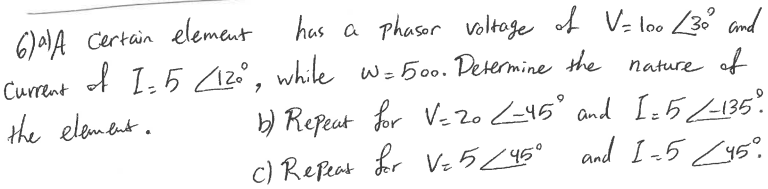 6) a) A certain element has a phasor voltage of V= 100 ∠30° and
Current of I = 5 ∠120°, while w = 500. Determine the nature of
the element. b) Repeat for V=20 ∠-45° and I = 5 ∠-135°.
c) Repeat for V= 5 ∠45° and I = 5 ∠45°.